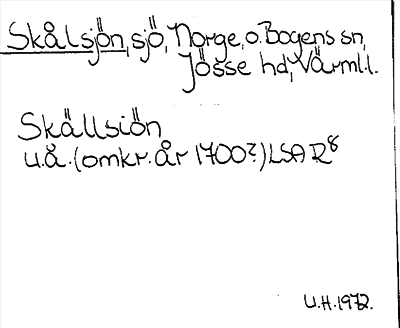 Skålsjön, sjö, Norge, o. Bogens sn,
Jösse hd, Värml.l.
Skållsiön
u.å. (omkr. år 1700?) LSA R8
U.H. 1972.